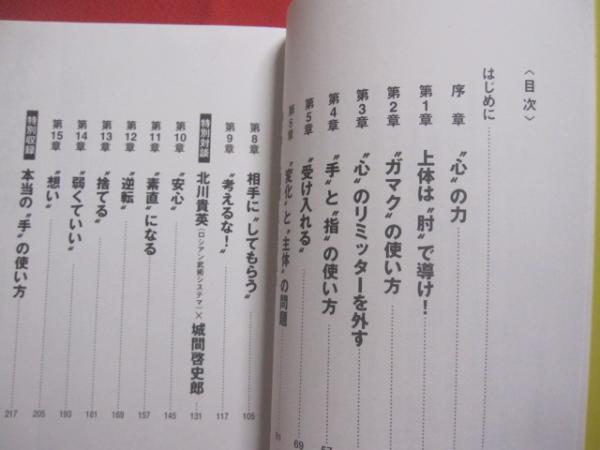 〈目次〉
はじめに
序章 〝心〟の力
第1章 上体は〝肘〟で導け!
第2章 〝ガマク〟の使い方
第3章 〝心〟のリミッターを外す
第4章 〝手〟と〝指〟の使い方 57
第5章 〝受け入れる〟 69
第6章 〝変化〟と〝主体〟の問題
第8章 相手に〝してもらう〟 105
第9章 〝考えるな!〟 117
特別対談 北川貴英(ロシアン武術システマ)×城間啓史郎 131
第10章 〝安心〟 145
第11章 〝素直〟になる 157
第12章 〝逆転〟 169
第13章 〝捨てる〟 181
第14章 〝弱くていい〟 193
第15章 〝想い〟 205
特別収録 本当の〝手〟の使い方 217